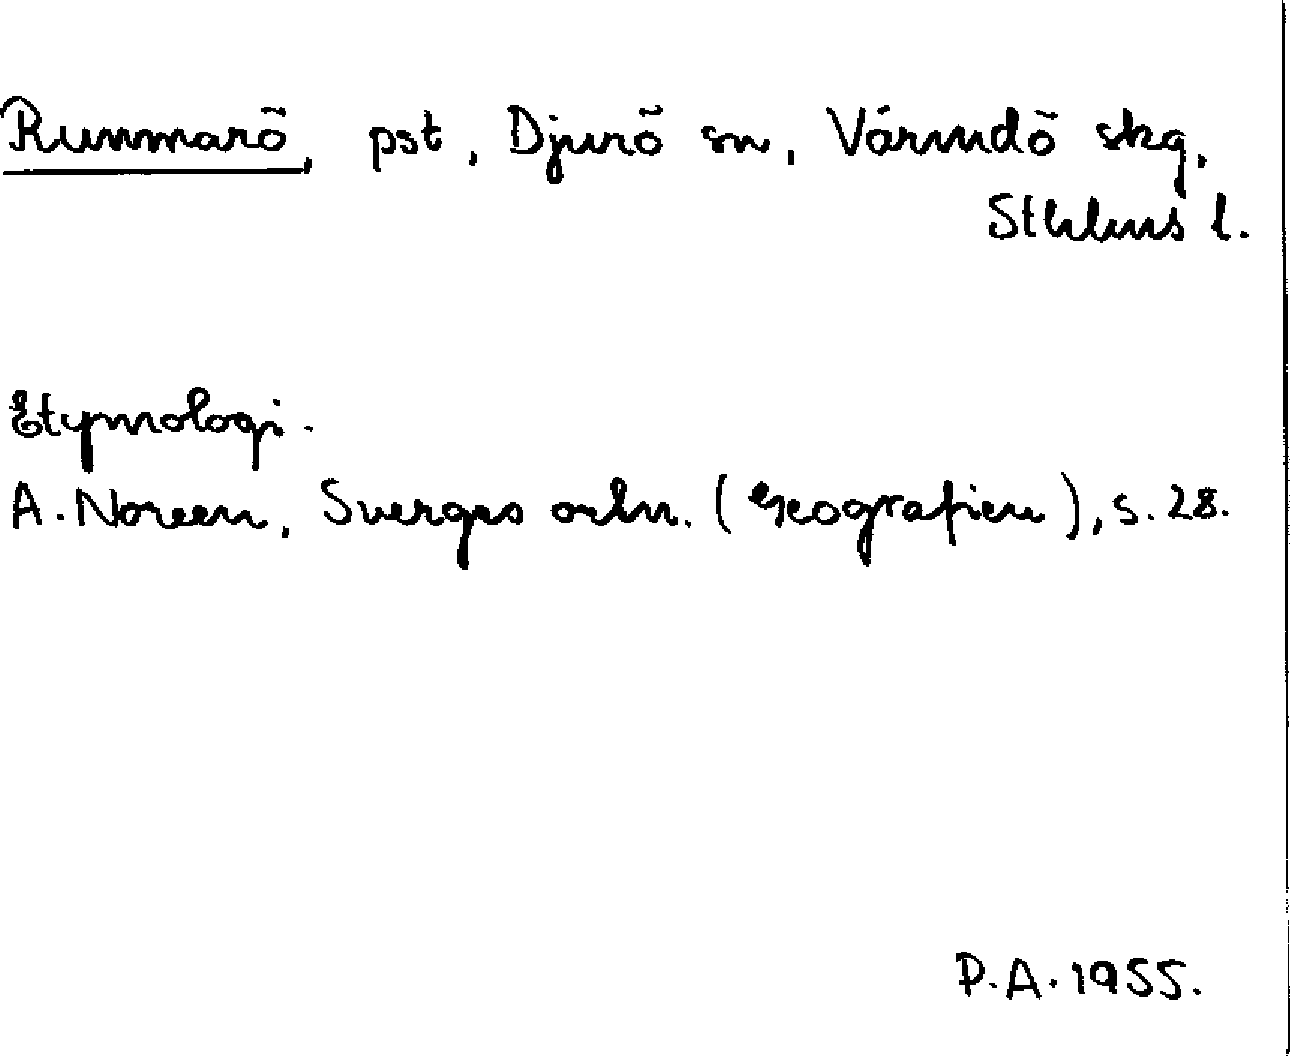 Runmarö, pst, Djurö sn, Värmdö skg,
Sthlms l.
Etymologi.
A. Noreen, Sverges ortn. (Geografien), s. 28.
P.A. 1955.